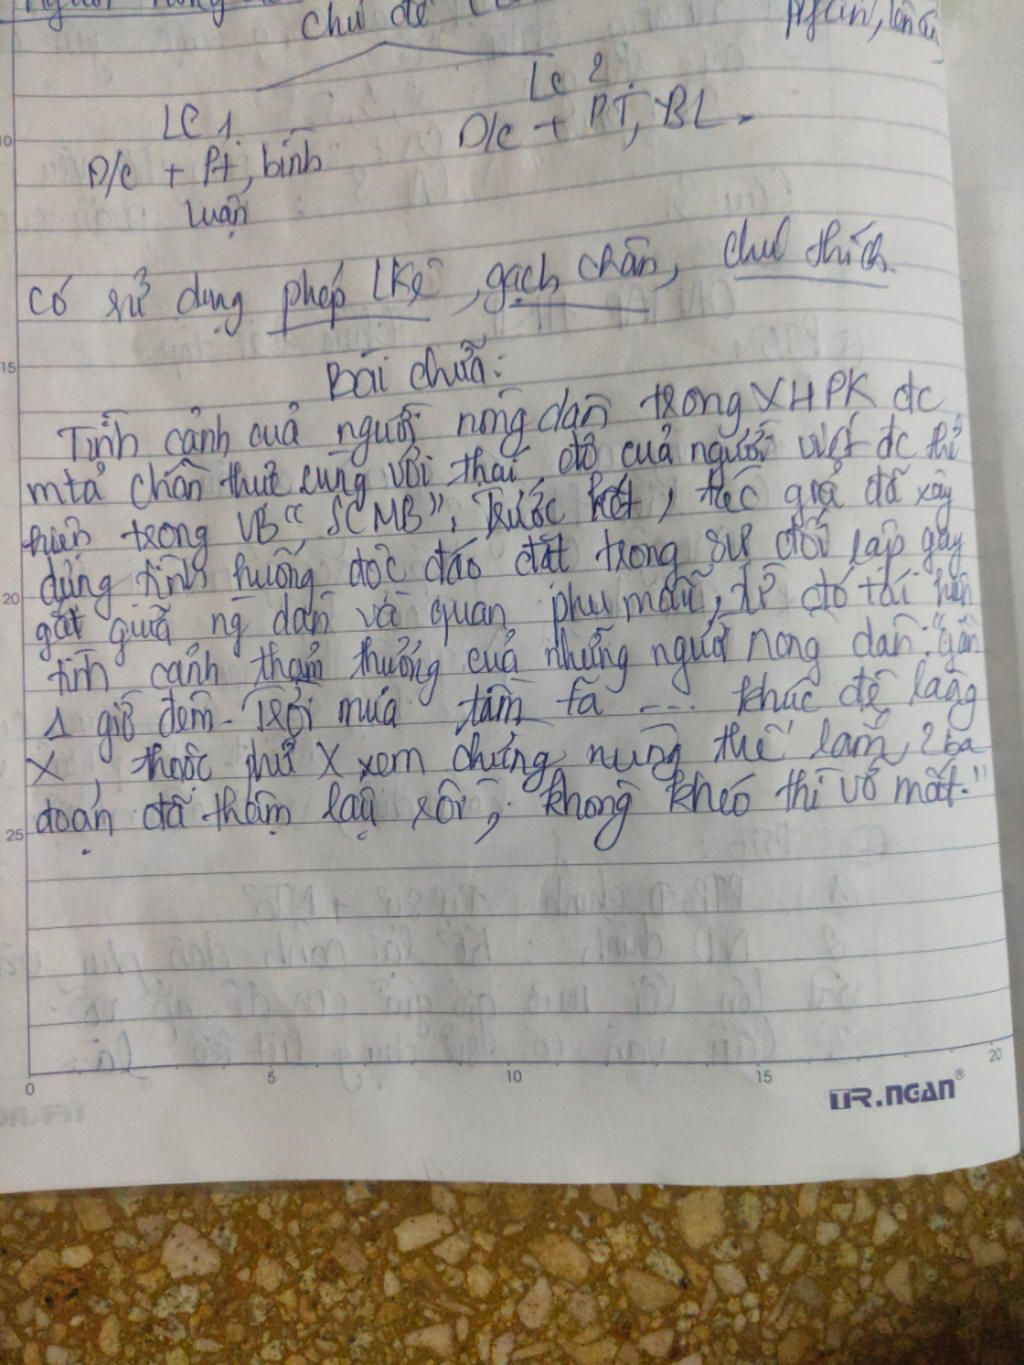 chủ đề
LC 1.
LC 2.
D/c + Pt, bình
luận
D/c + PT, BL.
có sử dụng phép LKê, gạch chân, chú thích
Bài chữa:
Tình cảnh của người nông dân trong XHPK đc
mtả chân thực cùng với thái độ của người viết đc thể
hiện trong VB "SCMB". Trước hết, tác giả đã xây
dựng tình huống độc đáo đặt trong sự đối lập gay
gắt giữa ng dân và quan phụ mẫu, để đó tái hiện
tình cảnh thảm thương của những người nông dân: "gần
1 giờ đêm. Trời mưa tầm tã .... khúc đê làng
X, thuộc phủ X xem chừng núng thế lắm, 2 ba
đoạn đã thẩm lậu rồi, không khéo thì vỡ mất."
TR.NGAN®